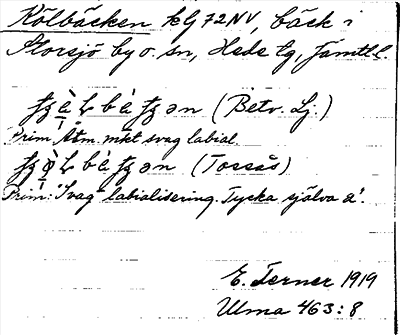 Kölbäcken kG 72 NV, bäck i
Storsjö by o. sn, Hede tg, Jämtl. l.
(Betv. Lj.)
Prim. Åtm. mkt svag labial.
(Tossås)
Prim: Svag labialisering. Tycka själva a'.
E. Terner 1919
Ulma 463:8